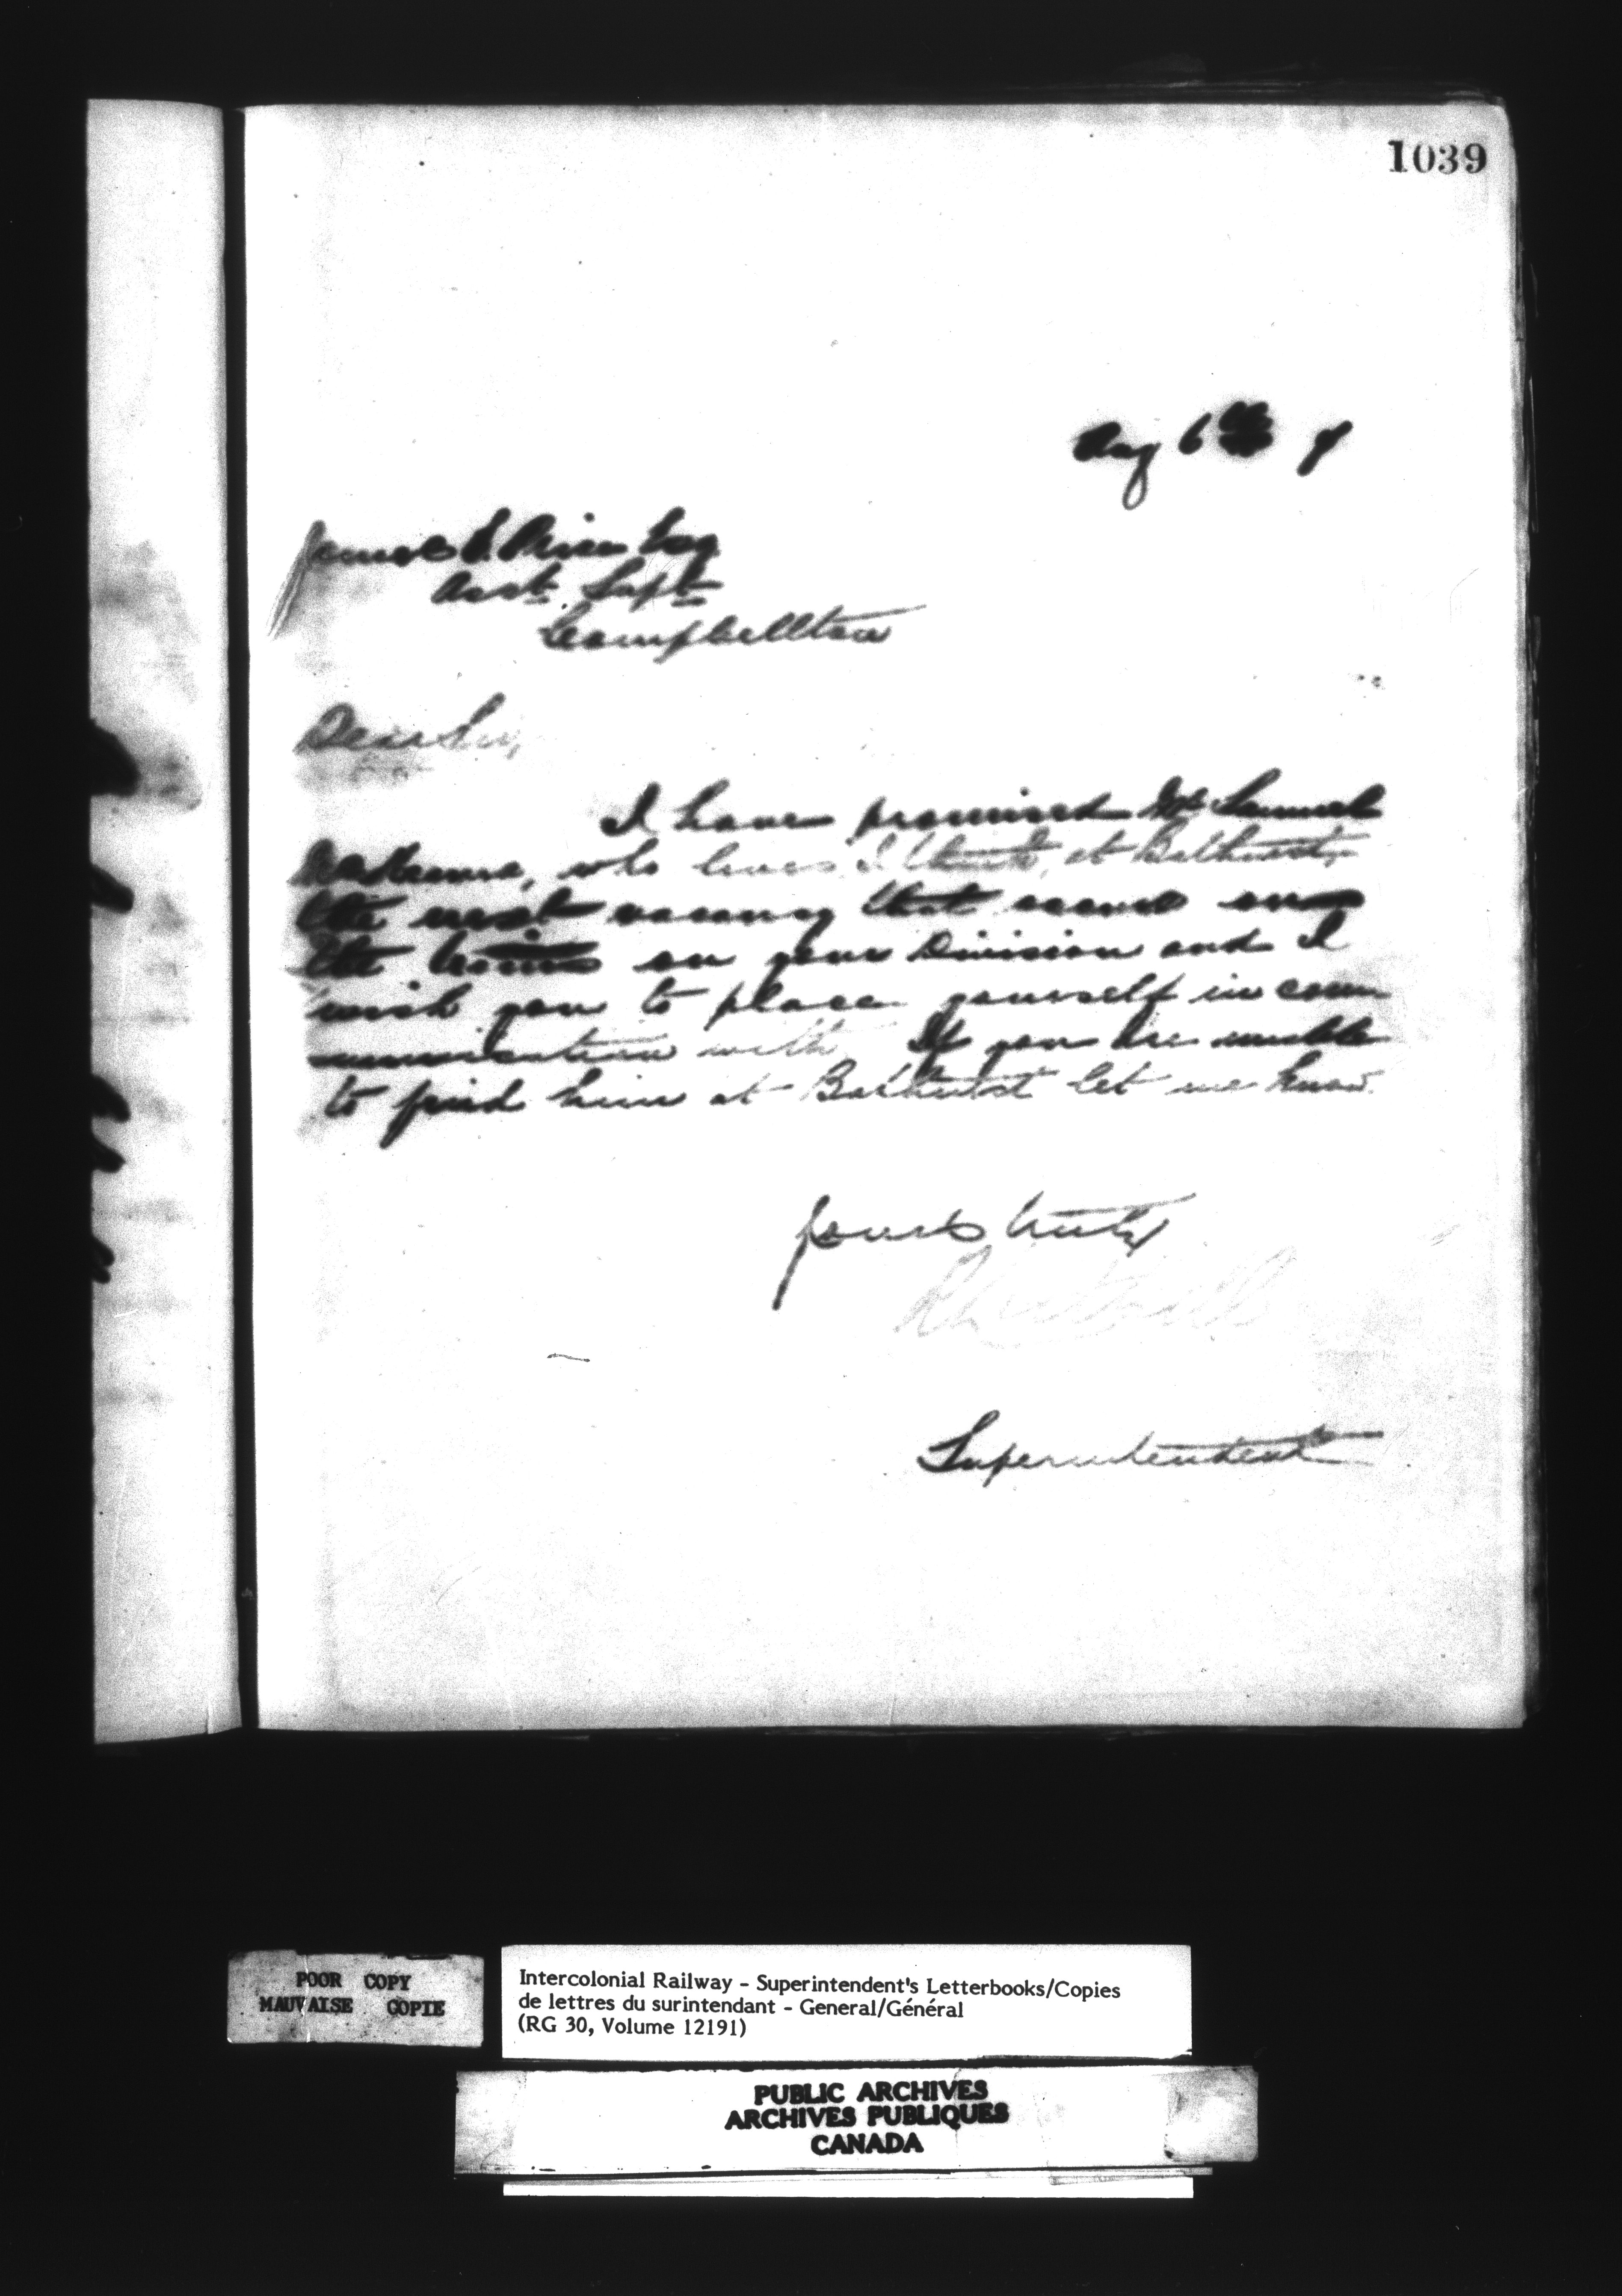 1039
Aug 6th 9
James E. Price Esq
Asst. Supt
Campbellton
Dear Sir,
I have promised Mr Samuel
McKenna, who lives I think, at Bathurst,
the next vacancy that occurs on
the trains on your Division and I
wish you to place yourself in com
munication with If you are unable
to find him at Bathurst let me know.
Yours truly
Superintendent
POOR COPY
MAUVAISE COPIE
Intercolonial Railway - Superintendent's Letterbooks/Copies
de lettres du surintendant - General/Général
(RG 30, Volume 12191)
PUBLIC ARCHIVES
ARCHIVES PUBLIQUES
CANADA